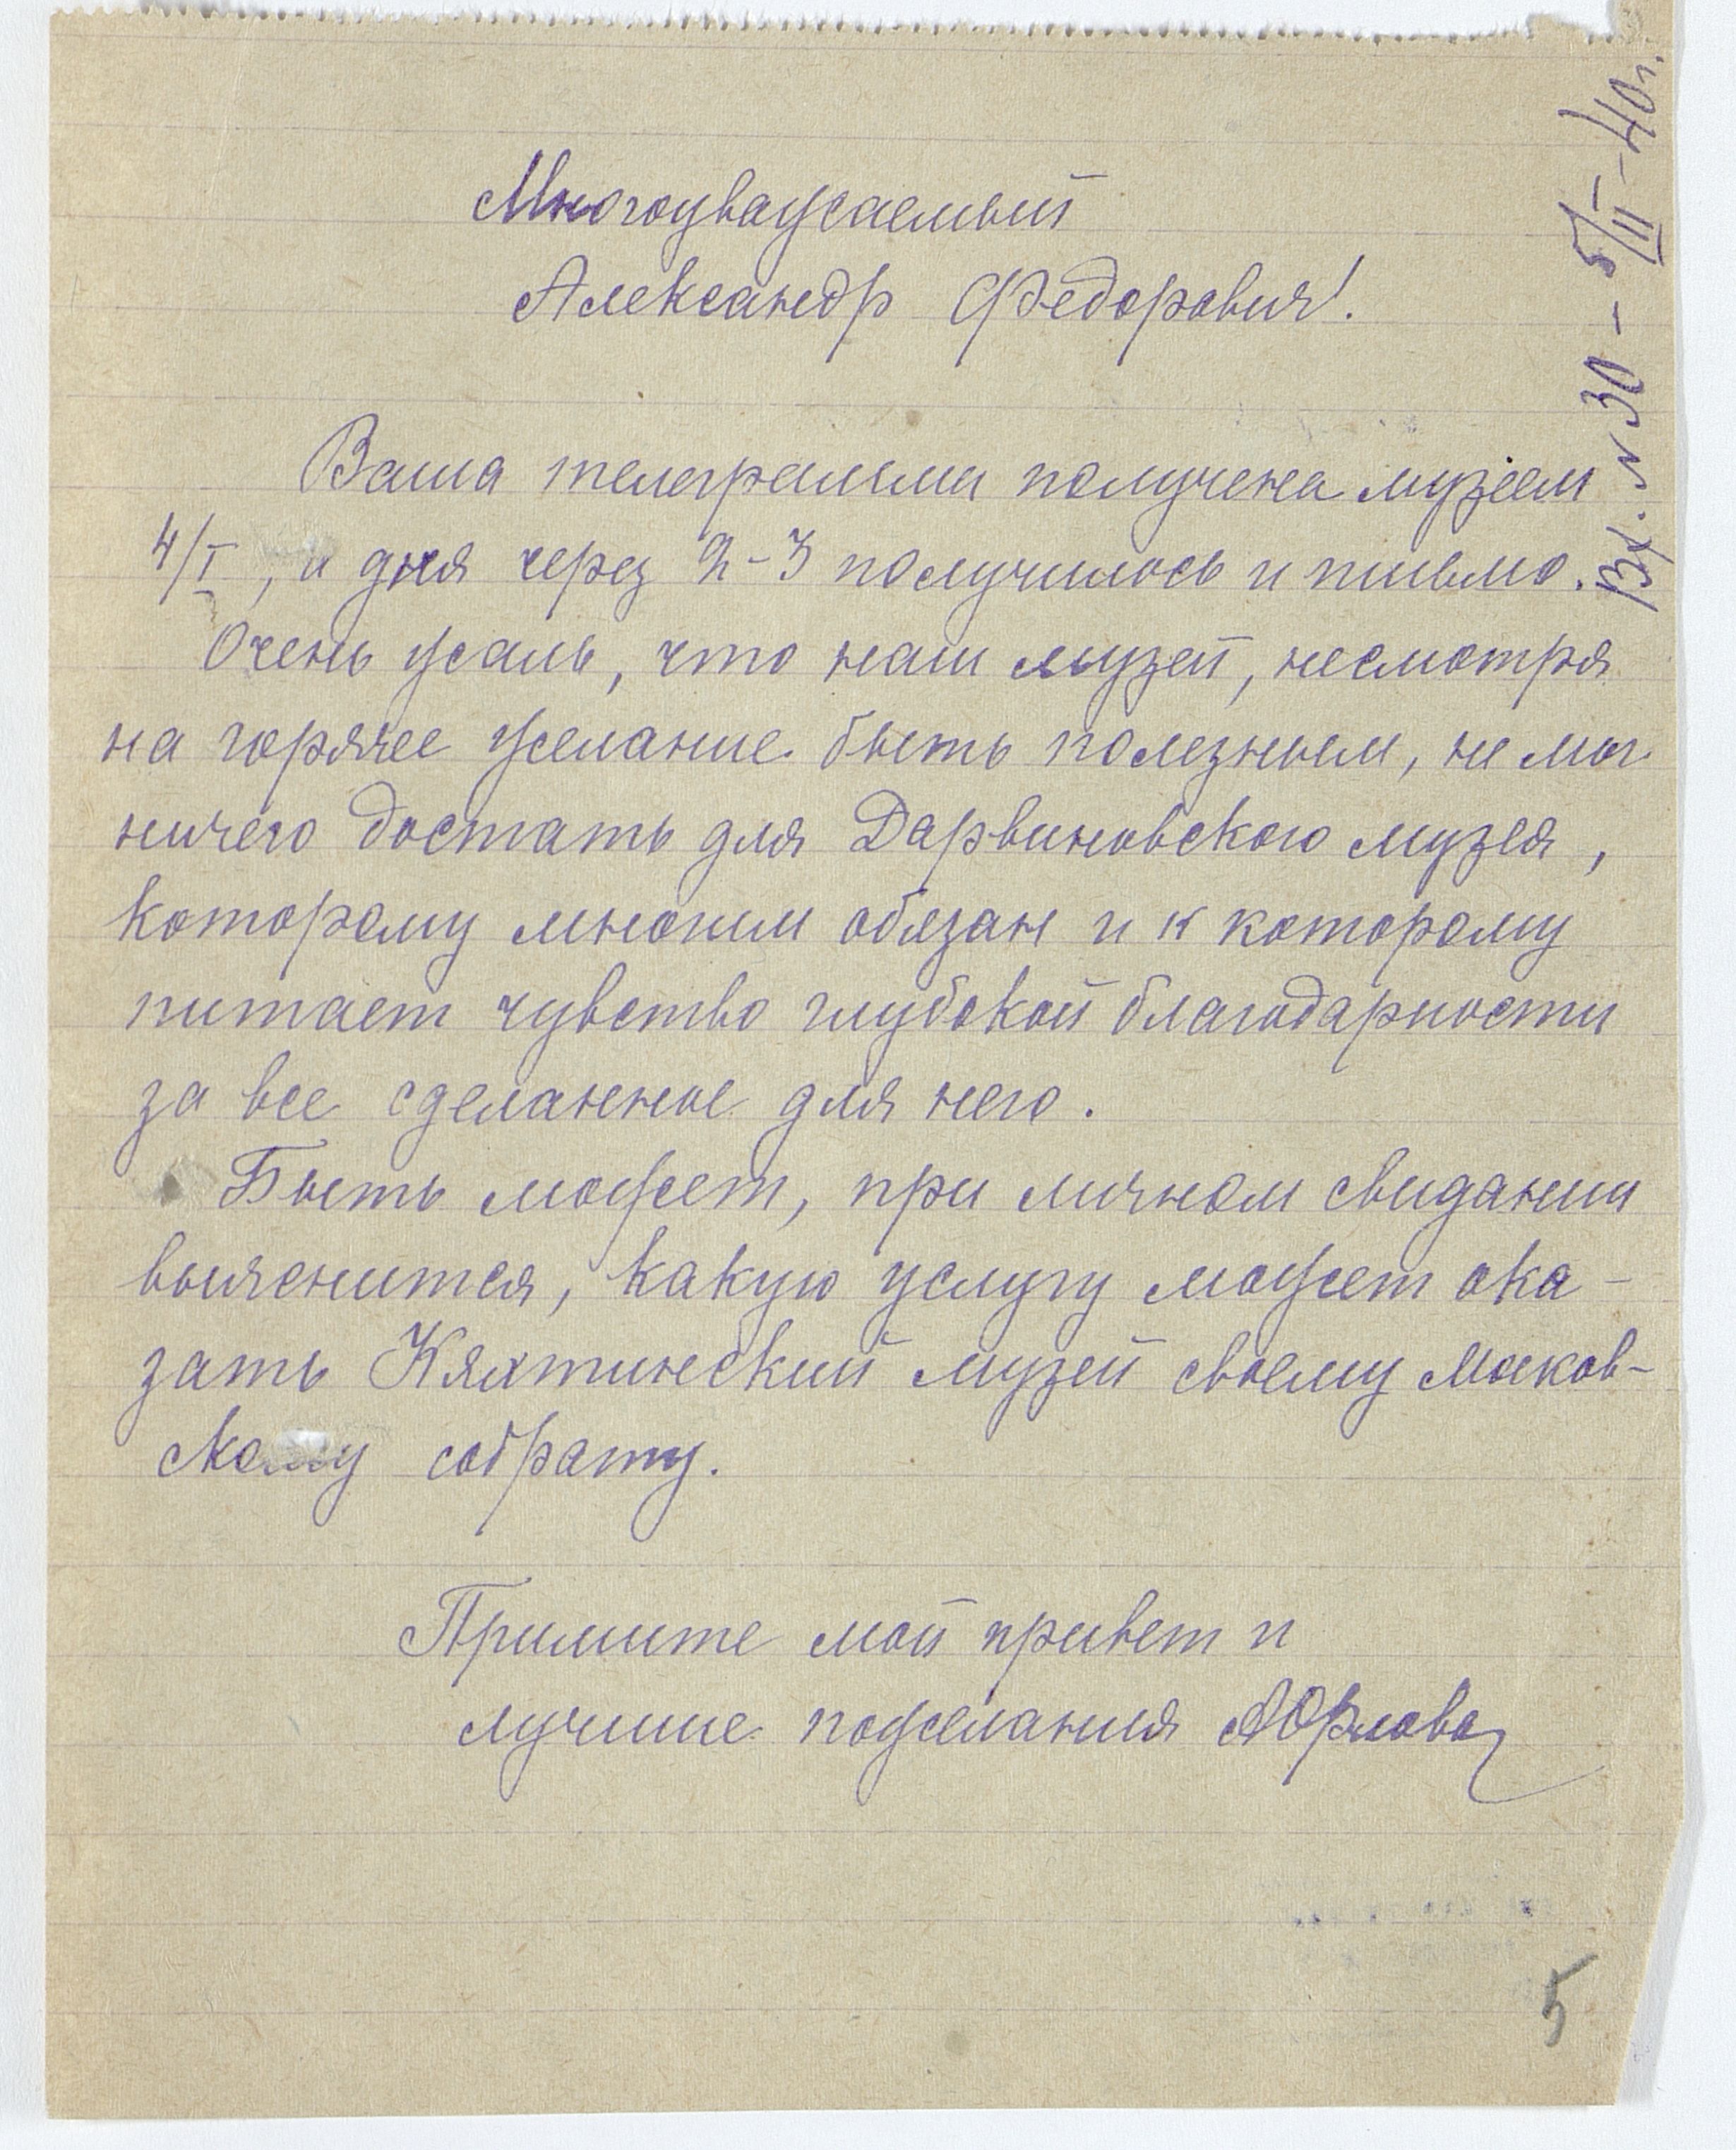 Вх. N 30 – 5/II – 40 г.
Многоуважаемый
Александр Федорович!
Ваша телеграмма получена музеем
4/I, а дня через 2-3 получилось и письмо.
Очень жаль, что наш музей, несмотря
на горячее желание быть полезным, не мог
ничего достать для Дарвиновского музея,
которому многим обязан и к которому
питает чувство глубокой благодарности
за все сделанное для него.
Быть может, при личном свидании
выяснится, какую услугу может ока-
зать Кяхтинский музей своему Москов-
скому собрату.
Примите мой привет и
лучшие пожелания АОрлова
5